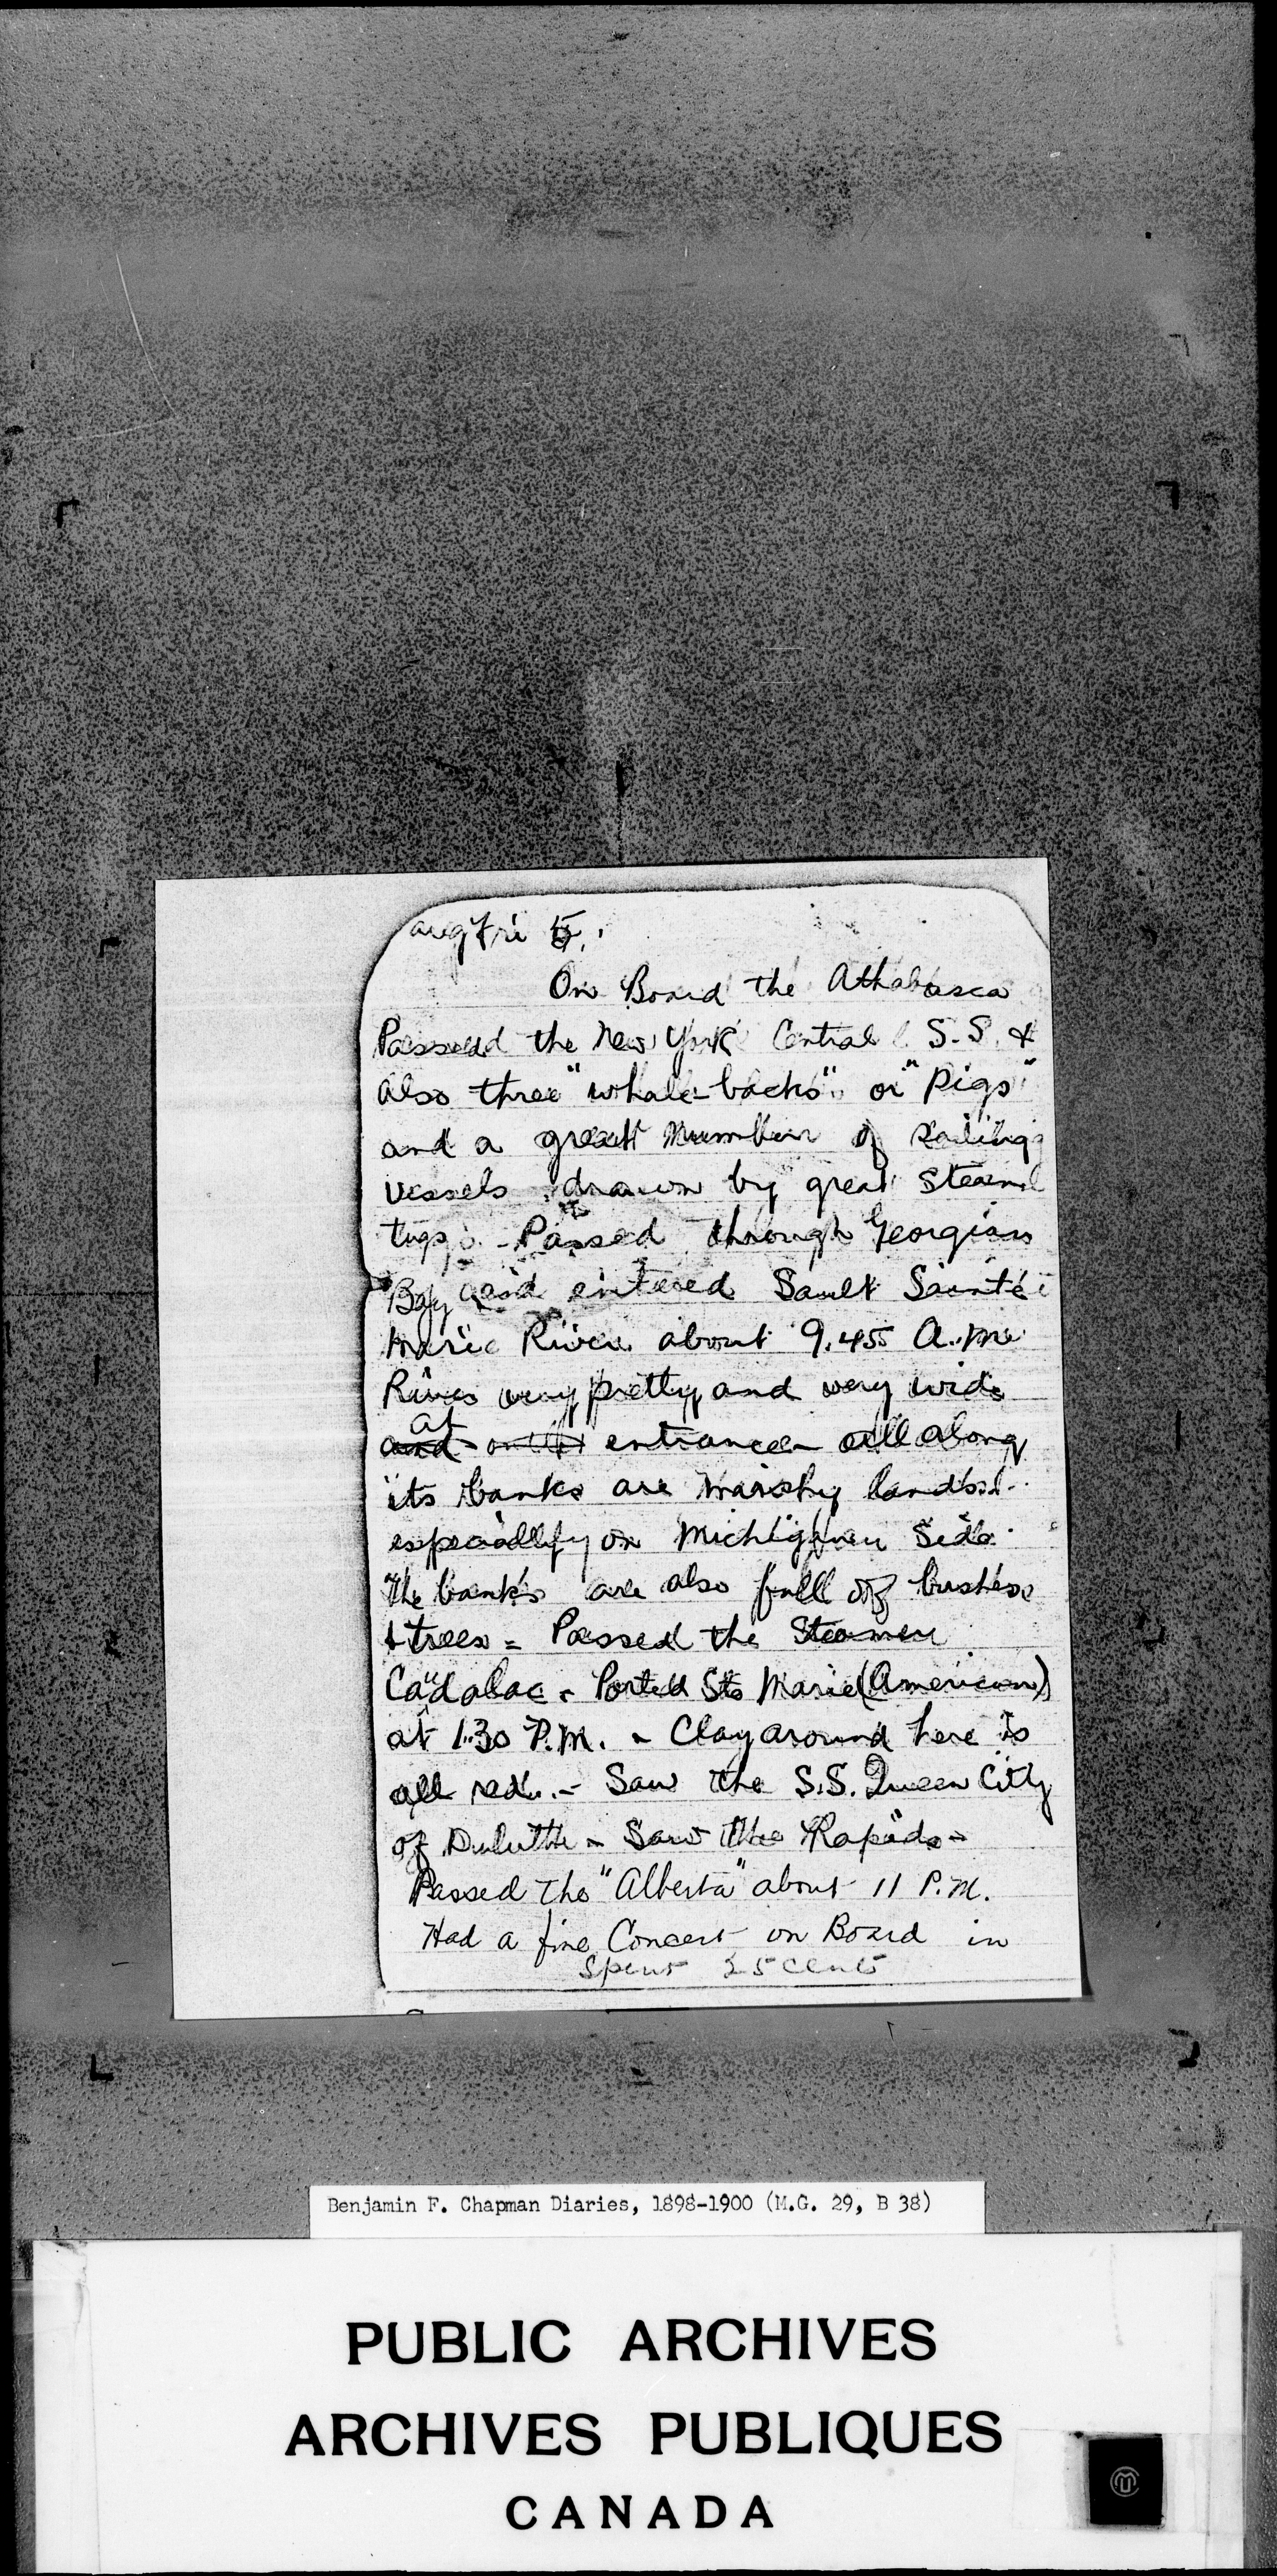 Aug Fri 5.
On Board the Athabasca
Passed the New York Central S.S. &
also three "whale-backs" or "Pigs"
and a great number of sailing
vessels drawn by great steam
tugs. - Passed through Georgian
Bay and entered Sault Sainte
Marie River about 9.45 A.M.
River very pretty and very wide
at
and entrance - all along
its banks are marshy lands
especially on Michigan Side.
The banks are also full of bushes
& trees = Passed the Steamer
Cadalac - Ported Ste Marie (American)
at 1.30 P.M. - Clay around here is
all red. - Saw the S.S. Queen City
of Duluth - Saw the Rapids -
Passed the "Alberta" about 11 P.M.
Had a fine Concert on Board in
Spent 25 cents
Benjamin F. Chapman Diaries, 1898-1900 (M.G. 29, B 38)
PUBLIC ARCHIVES
ARCHIVES PUBLIQUES
CANADA